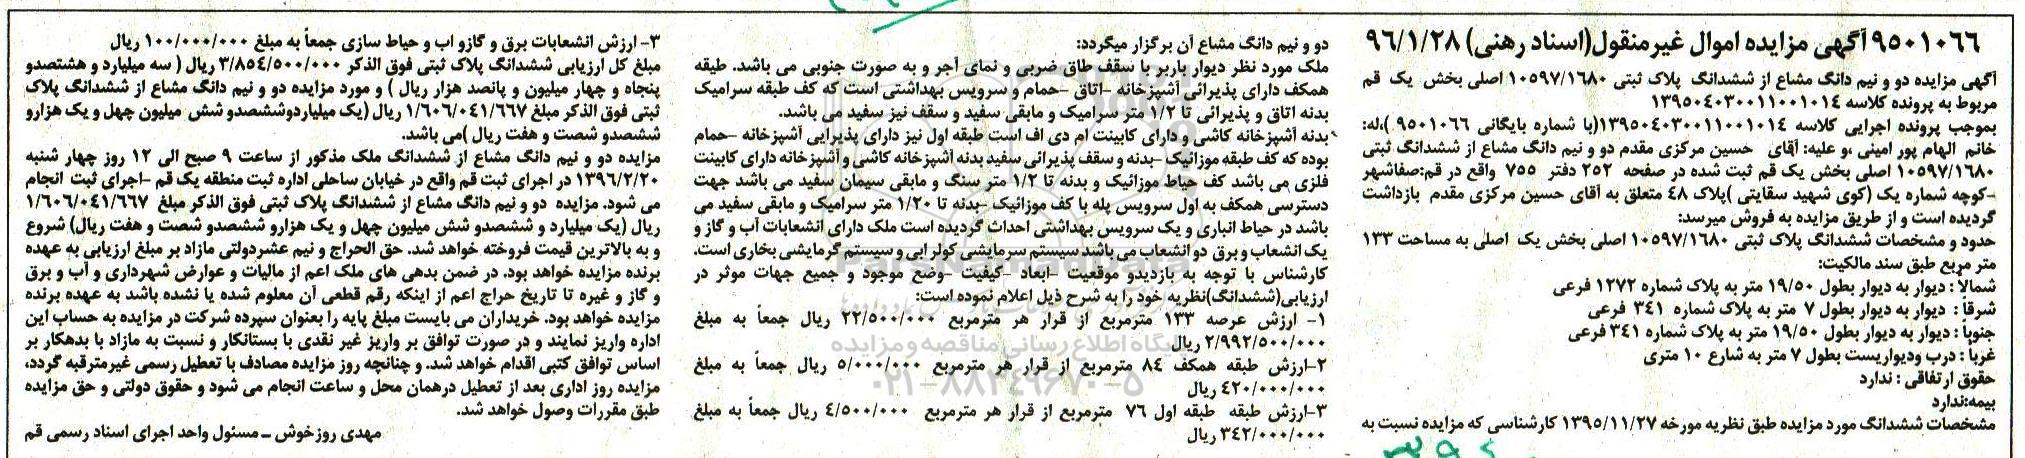 ۹۵۰۱۰۶۶ آگهی مزایده اموال غیرمنقول(اسناد رهنی) ۹۶/۱/۲۸
آگهی مزایده دو و نیم دانگ مشاع از ششدانگ پلاک ثبتی ۱۰۵۹۷/۱۶۸۰ اصلی بخش یک قم
مربوط به پرونده کلاسه ۱۳۹۵۰۴۰۳۰۰۱۱۰۰۱۰۱۴
بموجب پرونده اجرایی کلاسه ۱۳۹۵۰۴۰۳۰۰۱۱۰۰۱۰۱۴(با شماره بایگانی ۹۵۰۱۰۶۶ )،له:
خانم الهام پور امینی ،و علیه: آقای حسین مرکزی مقدم دو و نیم دانگ مشاع از ششدانگ ثبتی
۱۰۵۹۷/۱۶۸۰ اصلی بخش یک قم ثبت شده در صفحه ۲۵۲ دفتر ۷۵۵ واقع در قم:صفاشهر
-کوچه شماره یک (کوی شهید سقایتی )پلاک ۴۸ متعلق به آقای حسین مرکزی مقدم بازداشت
گردیده است و از طریق مزایده به فروش میرسد:
حدود و مشخصات ششدانگ پلاک ثبتی ۱۰۵۹۷/۱۶۸۰ اصلی بخش یک اصلی به مساحت ۱۳۳
متر مربع طبق سند مالکیت:
شمالا : دیوار به دیوار بطول ۱۹/۵۰ متر به پلاک شماره ۱۲۷۲ فرعی
شرقاً : دیوار به دیوار بطول ۷ متر به پلاک شماره ۳۴۱ فرعی
جنوباً : دیوار به دیوار بطول ۱۹/۵۰ متر به پلاک شماره ۳۴۱ فرعی
غرباً : درب ودیواریست بطول ۷ متر به شارع ۱۰ متری
حقوق ارتفاقی : ندارد
بیمه:ندارد
مشخصات ششدانگ مورد مزایده طبق نظریه مورخه ۱۳۹۵/۱۱/۲۷ کارشناسی که مزایده نسبت به
دو و نیم دانگ مشاع آن برگزار میگردد:
ملک مورد نظر دیوار باربر با سقف طاق ضربی و نمای آجر و به صورت جنوبی می باشد. طبقه
همکف دارای پذیرائی آشپزخانه -اتاق -حمام و سرویس بهداشتی است که کف طبقه سرامیک
بدنه اتاق و پذیرائی تا ۱/۲ متر سرامیک و مابقی سفید و سقف نیز سفید می باشد.
بدنه آشپزخانه کاشی و دارای کابینت ام دی اف است طبقه اول نیز دارای پذیرایی آشپزخانه -حمام
بوده که کف طبقه موزائیک -بدنه و سقف پذیرائی سفید بدنه آشپزخانه کاشی و آشپزخانه دارای کابینت
فلزی می باشد کف حیاط موزائیک و بدنه تا ۱/۲ متر سنگ و مابقی سیمان سفید می باشد جهت
دسترسی همکف به اول سرویس پله با کف موزائیک -بدنه تا ۱/۲۰ متر سرامیک و مابقی سفید می
باشد در حیاط انباری و یک سرویس بهداشتی احداث گردیده است ملک دارای انشعابات آب و گاز و
یک انشعاب و برق دو انشعاب می باشد سیستم سرمایشی کولر ابی و سیستم گرمایشی بخاری است.
کارشناس با توجه به بازدیدو موقعیت -ابعاد -کیفیت -وضع موجود و جمیع جهات موثر در
ارزیابی(ششدانگ)نظریه خود را به شرح ذیل اعلام نموده است:
۱- ارزش عرصه ۱۳۳ مترمربع از قرار هر مترمربع ۲۲/۵۰۰/۰۰۰ ریال جمعاً به مبلغ
۲/۹۹۲/۵۰۰/۰۰۰ ریال
۲-ارزش طبقه همکف ۸۴ مترمربع از قرار هر مترمربع ۵/۰۰۰/۰۰۰ ریال جمعاً به مبلغ
۴۲۰/۰۰۰/۰۰۰ ریال
۳-ارزش طبقه طبقه اول ۷۶ مترمربع از قرار هر مترمربع ۴/۵۰۰/۰۰۰ ریال جمعاً به مبلغ
۳۴۲/۰۰۰/۰۰۰ ریال
۳- ارزش انشعابات برق و گازو اب و حیاط سازی جمعاً به مبلغ ۱۰۰/۰۰۰/۰۰۰ ریال
مبلغ کل ارزیابی ششدانگ پلاک ثبتی فوق الذکر ۳/۸۵۴/۵۰۰/۰۰۰ ریال ( سه میلیارد و هشتصدو
پنجاه و چهار میلیون و پانصد هزار ریال ) و مورد مزایده دو و نیم دانگ مشاع از ششدانگ پلاک
ثبتی فوق الذکر مبلغ ۱/۶۰۶/۰۴۱/۶۶۷ ریال (یک میلیاردوششصدو شش میلیون چهل و یک هزارو
ششصدو شصت و هفت ریال )می باشد.
مزایده دو و نیم دانگ مشاع از ششدانگ ملک مذکور از ساعت ۹ صبح الی ۱۲ روز چهار شنبه
۱۳۹۶/۲/۲۰ در اجرای ثبت قم واقع در خیابان ساحلی اداره ثبت منطقه یک قم -اجرای ثبت انجام
می شود. مزایده دو و نیم دانگ مشاع از ششدانگ پلاک ثبتی فوق الذکر مبلغ ۱/۶۰۶/۰۴۱/۶۶۷
ریال (یک میلیارد و ششصدو شش میلیون چهل و یک هزارو ششصدو شصت و هفت ریال) شروع
و به بالاترین قیمت فروخته خواهد شد. حق الحراج و نیم عشردولتی مازاد بر مبلغ ارزیابی به عهده
برنده مزایده خواهد بود. در ضمن بدهی های ملک اعم از مالیات و عوارض شهرداری و آب و برق
و گاز و غیره تا تاریخ حراج اعم از اینکه رقم قطعی آن معلوم شده یا نشده باشد به عهده برنده
مزایده خواهد بود. خریداران می بایست مبلغ پایه را بعنوان سپرده شرکت در مزایده به حساب این
اداره واریز نمایند و در صورت توافق بر واریز غیر نقدی با بستانکار و نسبت به مازاد با بدهکار بر
اساس توافق کتبی اقدام خواهد شد. و چنانچه روز مزایده مصادف با تعطیل رسمی غیرمترقبه گردد،
مزایده روز اداری بعد از تعطیل درهمان محل و ساعت انجام می شود و حقوق دولتی و حق مزایده
طبق مقررات وصول خواهد شد.
مهدی روزخوش ـ مسئول واحد اجرای اسناد رسمی قم
پایگاه اطلاع رسانی مناقصه و مزایده
۰۲۱-۸۸۳۴۹۶۷۰-۵